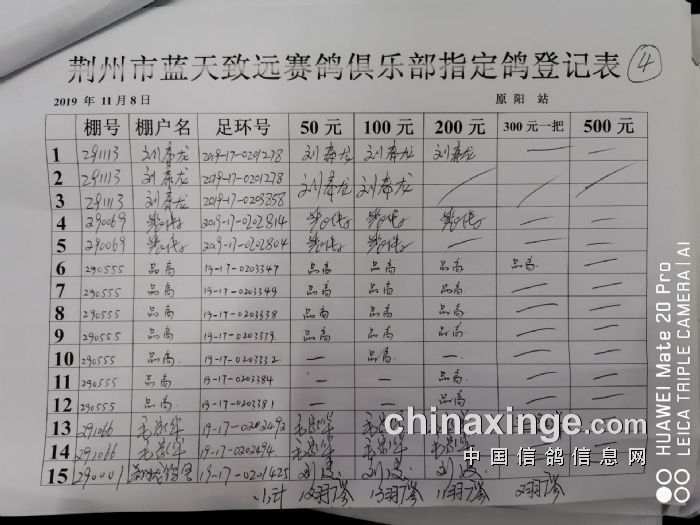 荆州市蓝天致远赛鸽俱乐部指定鸽登记表 ④
2019 年 11 月 8 日 原阳 站
棚号 棚户名 足环号 50元 100元 200元 300元一把 500元
1 291113 刘泰龙 2019-17-0201278 刘泰龙 刘泰龙 刘泰龙
2 291113 刘泰龙 2019-17-0201278 刘泰龙 刘泰龙
3 291113 刘泰龙 2019-17-0203258
4 290069 2019-17-0202814
5 290069 2019-17-0202804 —
6 290555 品高 19-17-0203347 品高 品高 品高 品高 —
7 290555 品高 19-17-0203349 品高 品高 品高 — —
8 290555 品高 19-17-0203338 品高 品高 品高 — —
9 290555 品高 19-17-0203339 品高 品高 品高 — —
10 290555 品高 19-17-0203332 — 品高 — — —
11 290555 品高 19-17-0203384 — — 品高 — —
12 290555 品高 19-17-0203381 — — 品高
13 291066 19-17-0202492
14 291066 19-17-0202494
15 290001 19-17-0201425
小计 12羽 13羽 11羽 2羽
chinaxinge.com
中国信鸽信息网
HUAWEI Mate 20 Pro
LEICA TRIPLE CAMERA | AI